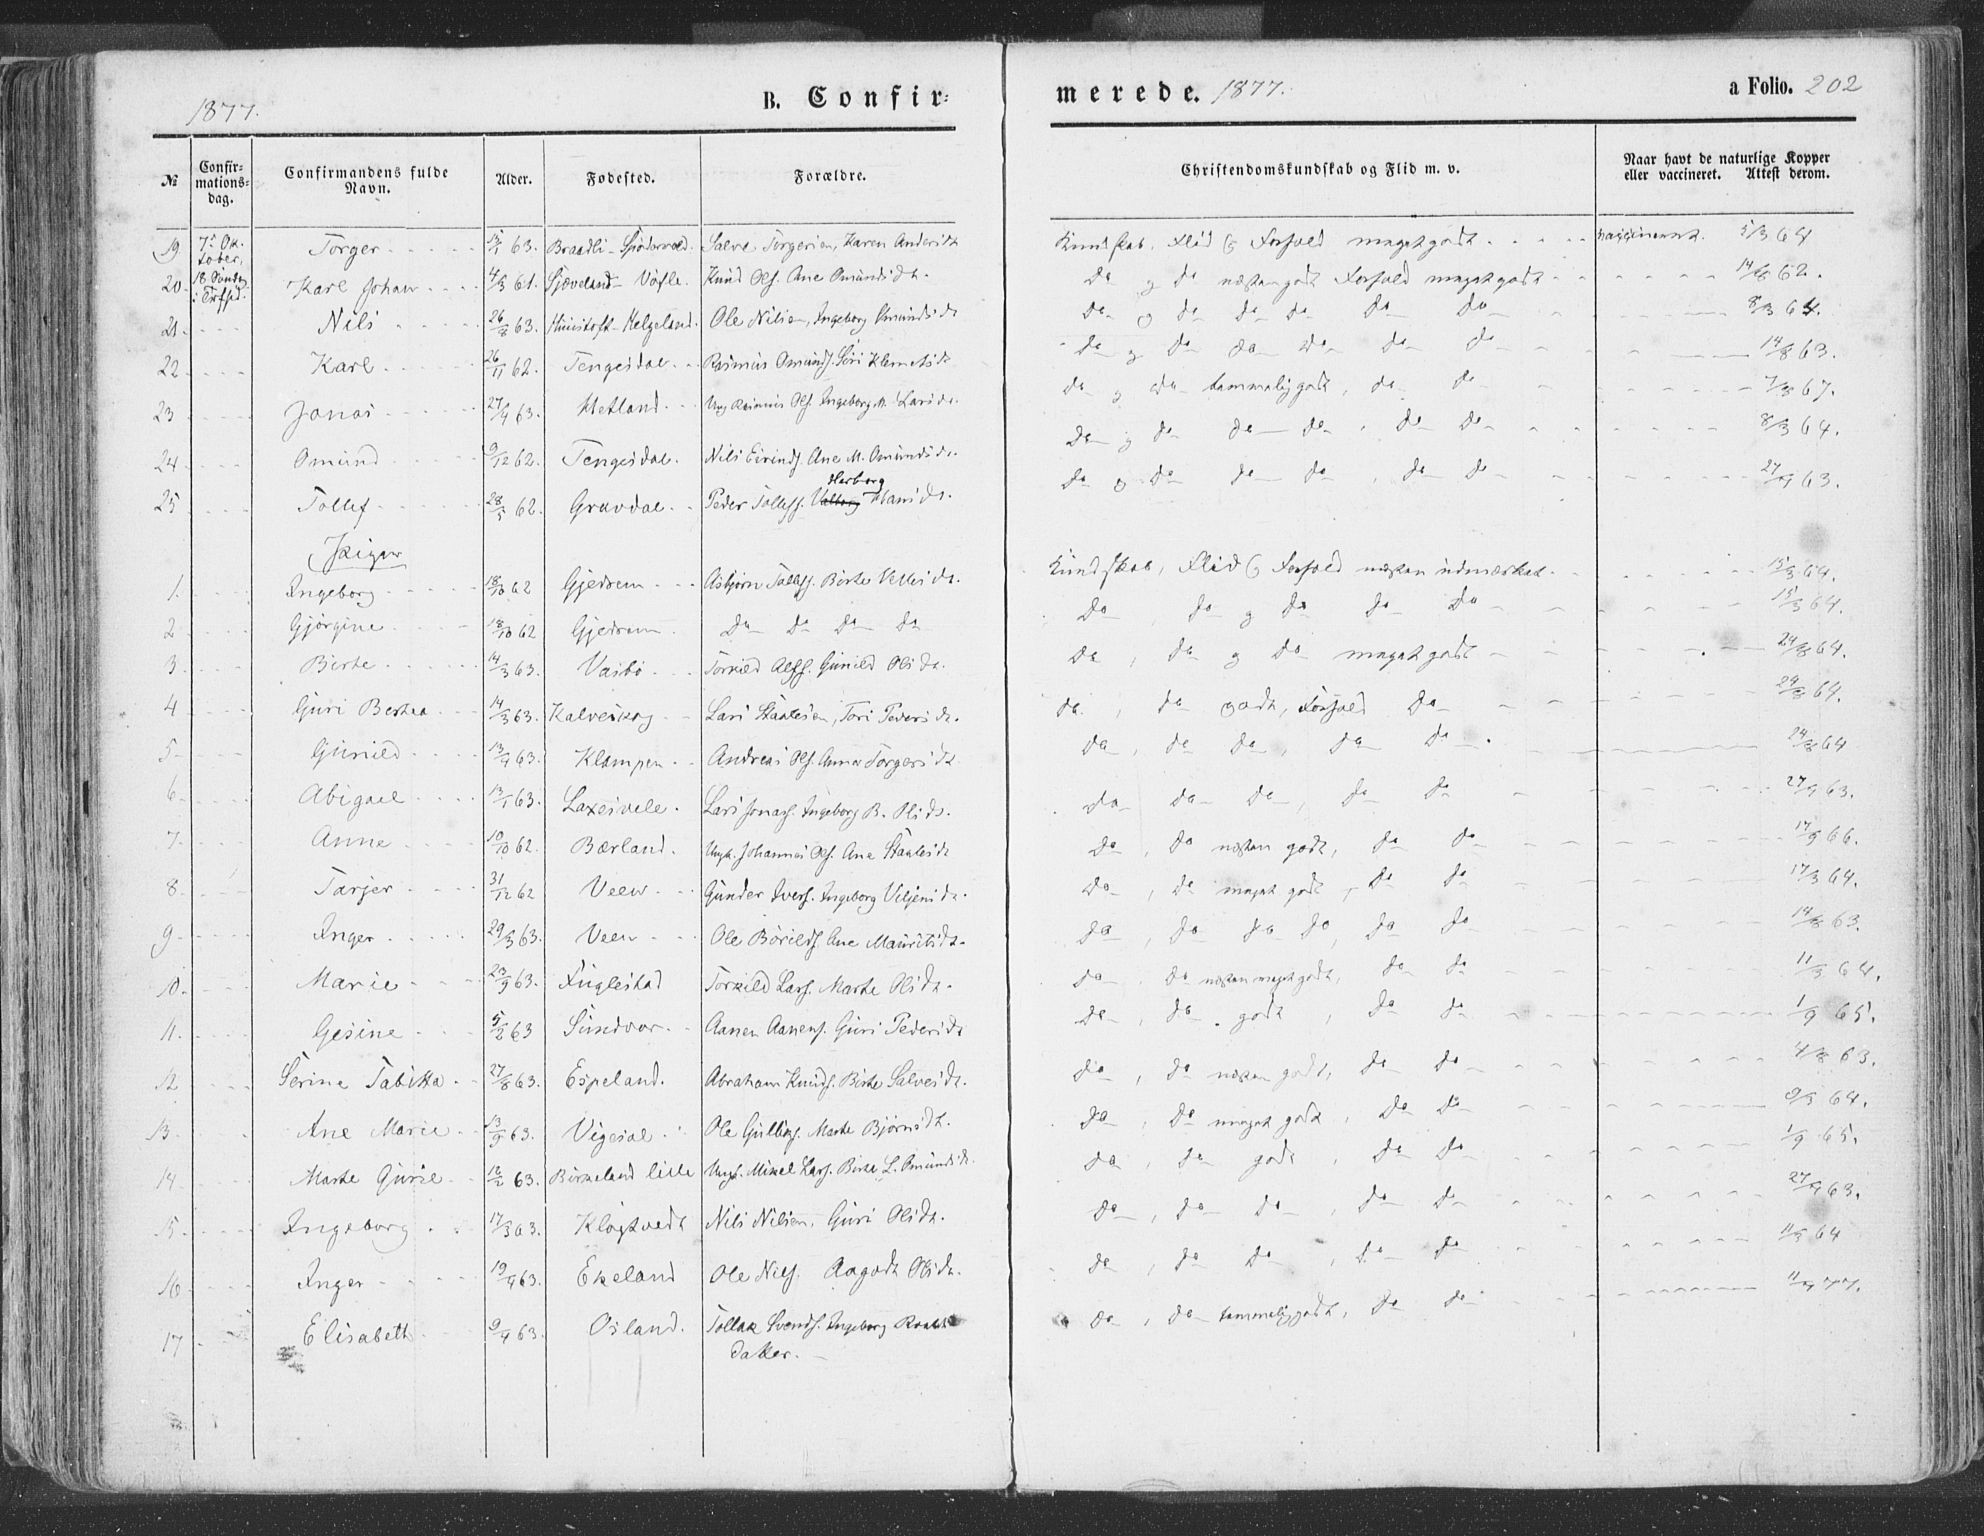 1877. B. Confir= merede. 1877. a Folio. 202
№ Confir=mations=dag. Confirmandens fulde Navn. Alder. Fødested. Forældre. Christendomskundskab og Flid m. v. Naar havt de naturlige Kopper eller vaccineret. Attest derom.
19 7de Oktober, Torger 63. Braadli Salve Torgersen, Karen Andersdt Kundskab, Flid & Forhold meget godt vaccineret. 5/3 64
20 18 Søndag i Trefd. Karl Johan 4/3 61. Sjæveland Knud Ols. Ane Omundsdt. Do og do næsten godt Forhold meget godt 14/8 62.
21 Nils 26/8 63. Helgeland. Ole Nilsen, Ingeborg Omundsdt Do og do do do do do 8/3 64.
22 Karl 26/11 62. Tengesdal Rasmus Omunds. Siri Klemetsdt do og do do do do do 14/8 63.
23 Jonas 27/4 63. Hetland Ung. Rasmus Ols. Ingeborg M. Larsdt. do og do temmelig godt, do do 7/8 67.
24 Omund 9/12 62. Tengesdal. Nils Eivinds. Ane M. Omundsdt. Do og do do do do do 8/3 64.
25 Tollef 28/5 62. Gravdal Peder Tollefs. Valborg Herborg Hansdt. do og do do do, do do 27/9 63.
Piger
1. Ingeborg 18/10 62 Gjedrem Asbjørn Tollefs. Birte Vellesdt. Kundskab, Flid & Forhold næsten udmærket. 15/3 64.
2 Gjørgine 18/10 62 Gjedrem Do Do Do Do Do, do og do do do 15/3 64.
3. Birte 14/3 63. Vasbø Torkild Alfs. Gunild Olsdt. do, do og do meget godt 24/8 64.
4 Guri Bertea 14/3 63. Kalveskog Lars Staalesen, Tori Pedersdt. do, do godt, Forhold do 24/8 64.
5 Gunild 13/4 63. Klampen Andreas Ols. Anna Torgersdt do, do do, do do 24/8 64
6 Abigael 13/1 63. Laxesvele. Lars Jonas. Ingeborg B. Olsdt. do do do, do do 27/9 63.
7. Anne 10/10 62. Bærland. Ungk. Johannes Ols. Ane Staalesdt do, do næsten godt, do do 17/9 66.
8. Tarjer 31/12 62 Veen Gunder Ivers. Ingeborg Veljensdt. Do, do meget godt, do do 17/3 64.
9 Inger 29/3 63. Veen Ole Børilds. Ane Mauritsdt. do, do do do, do do 14/8 63.
10. Marie 63. Fuglestad Torkild Lars. Marte Olsdt. do, do næsten meget godt, do do 11/3 64.
11. Gesine 5/2 63 Sundvor Aanen Aanens. Guri Pedersdt do, do godt, do do 1/9 65.
12. Serine Tabitta 27/8 63. Espeland. Abraham Knuds. Birte Salvesdt. do, do næsten godt, do do 4/8 63.
13. Ane Marie 13/9 63. Vigesal Ole Gulliks. Marte Bjørnsdt. do, do meget godt, do do 9/3 64.
14 Marte Gurie 63. Birkeland lille Ungk. Mikel Lars. Birte L. Omundsdt. do, do godt, do do 1/9 65.
15. Ingeborg 17/3 63. Kløgtvedt Nils Nilsen, Guri Olsdt. do, do do, do do 27/9 63.
16 Inger 19/4 63. Ekeland Ole Nils. Aagodt Olsdt. do, do do, do do 64
17 Elisabeth 9/4 63. Osland. Tollak Svends. Ingeborg do, do temmelig godt, do do 77.
datter.